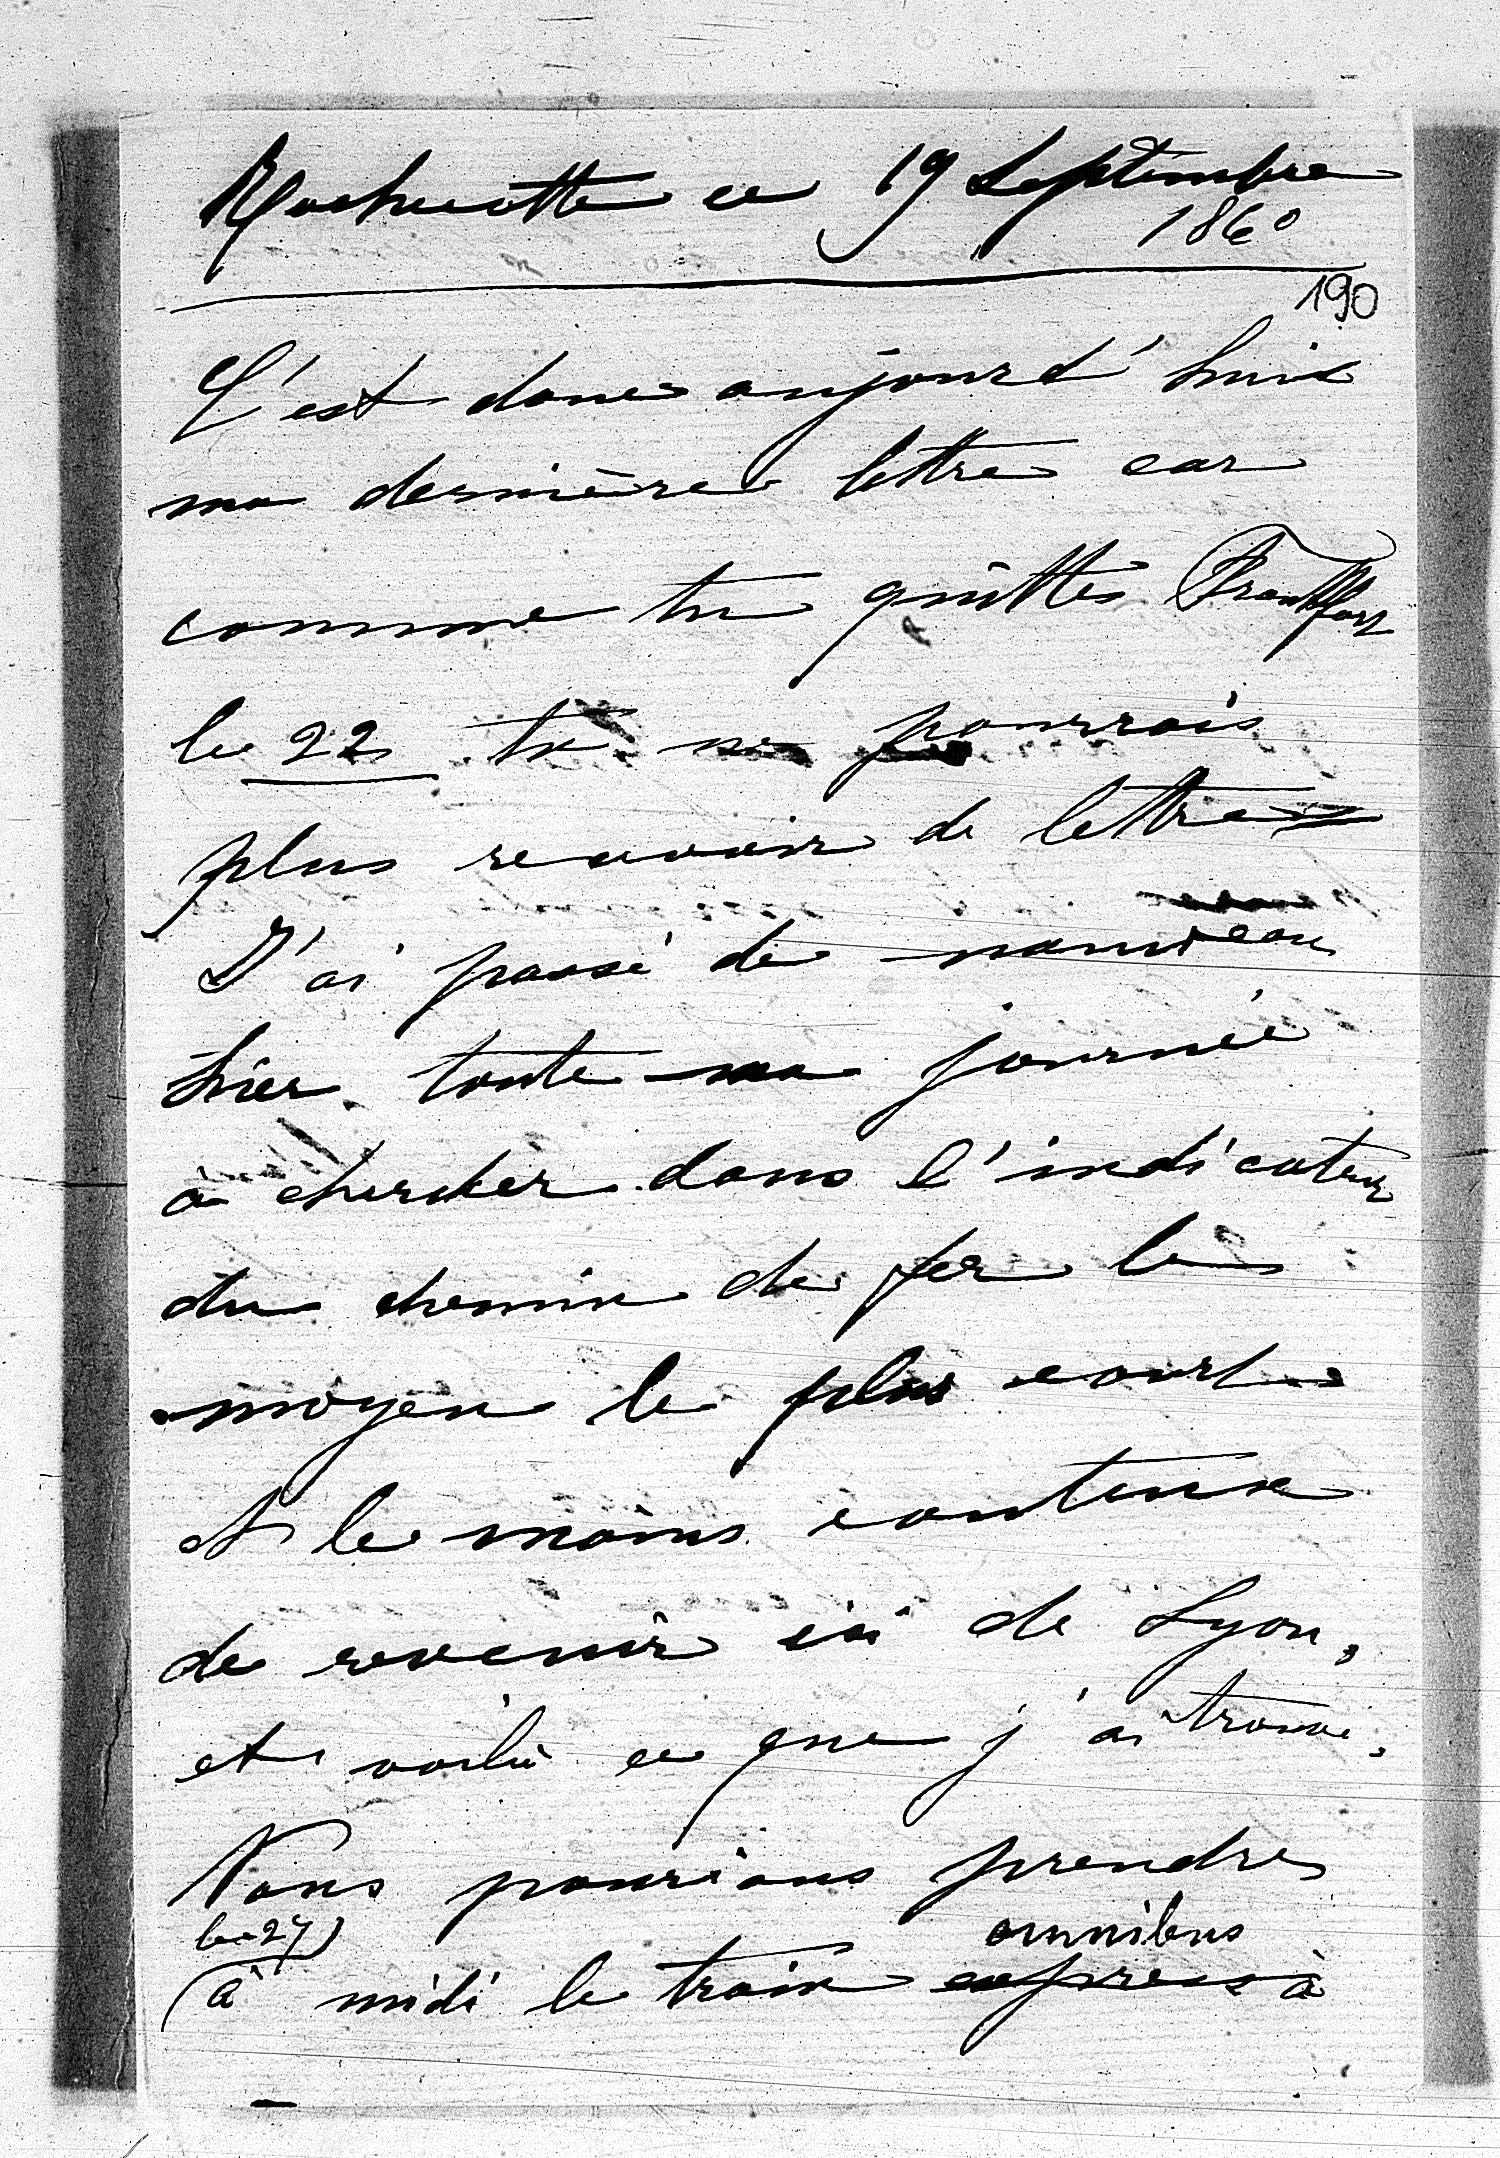 Rochecotte ce 19 Septembre
1860
190
C'est donc aujourd'hui
ma dernière lettre car
comme tu quittes Francfort
le 22 tu ne pourrais
plus recevoir de lettres
J'ai passé de nouveau
hier toute ma journée
à chercher dans l'indicateur
du chemin de fer le
moyen le plus court
et le moins couteux
de revenir ici de Lyon,
et voilà ce que j'ai trouvé.
Nous pourions prendre
le 27) omnibus
(à midi le train express à